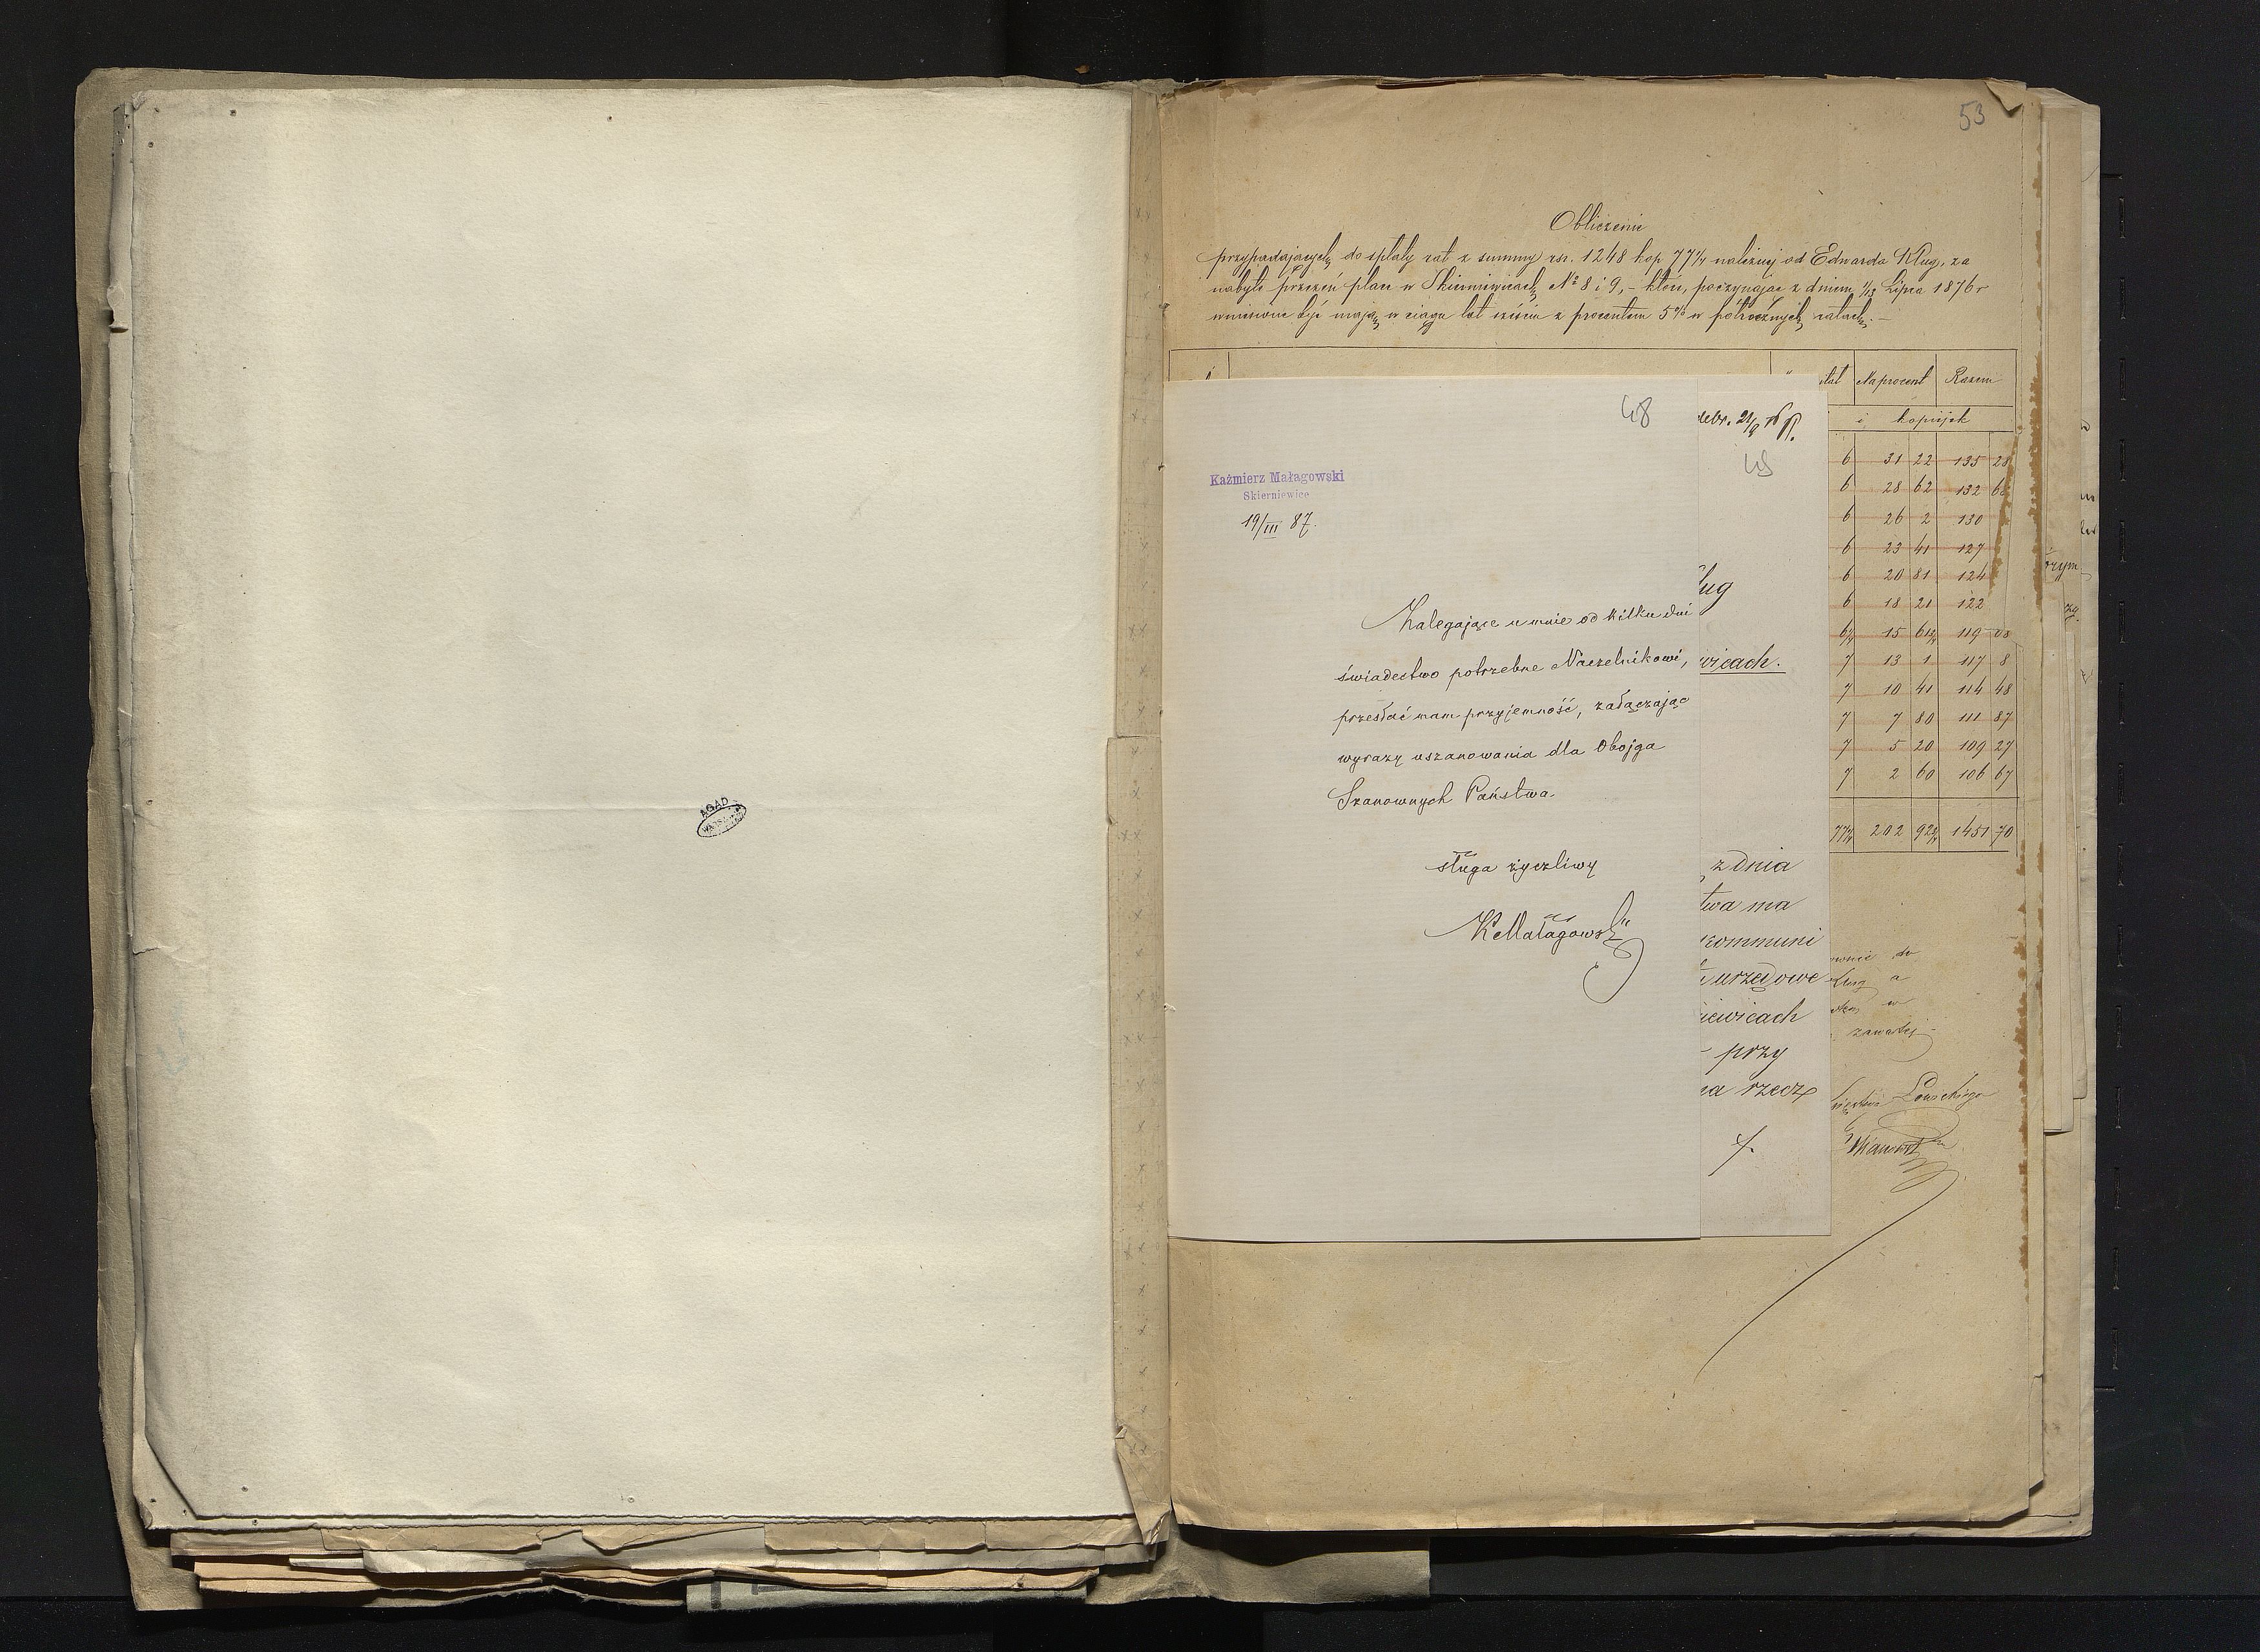 53
Obliczenie
przypadających do spłaty rat z summy rsr. 1248 kop 77¼ należnej od Edwarda Klug, za
nabyte przezeń place w Skierniewicach № 8 i 9, – które, poczynając z dniem 1/13 Lipca 1876 r
wniesione być mają, w ciągu lat sześciu z procentem 5% w półrocznych ratach. –
Na procent Razem
i kopijek
6 31 22 135 28
6 28 62 132 68
6 26 2 130
6 23 41 127
6 20 81 124
6 18 21 122
15 119
7 13 1 117 8
7 10 41 114 48
7 7 80 111 87
7 5 20 109 27
7 2 60 106 67
202 1451 70
zawartej
Łowickiego
48
Kaźmierz Małagowski
Skierniewice
19/III 87.
Zalegające u mnie od kilku dni
świadectwo potrzebne Naczelnikowi,
przesłać mam przyjemność, załączając
wyrazy uszanowania dla Obojga
Szanownych Państwa.
sługa życzliwy
KMałagowski
49
lug
wicach.
z dnia
twa ma
kommuni
urzędowe
iewicach
– przy
na rzecz
./.
AGAD